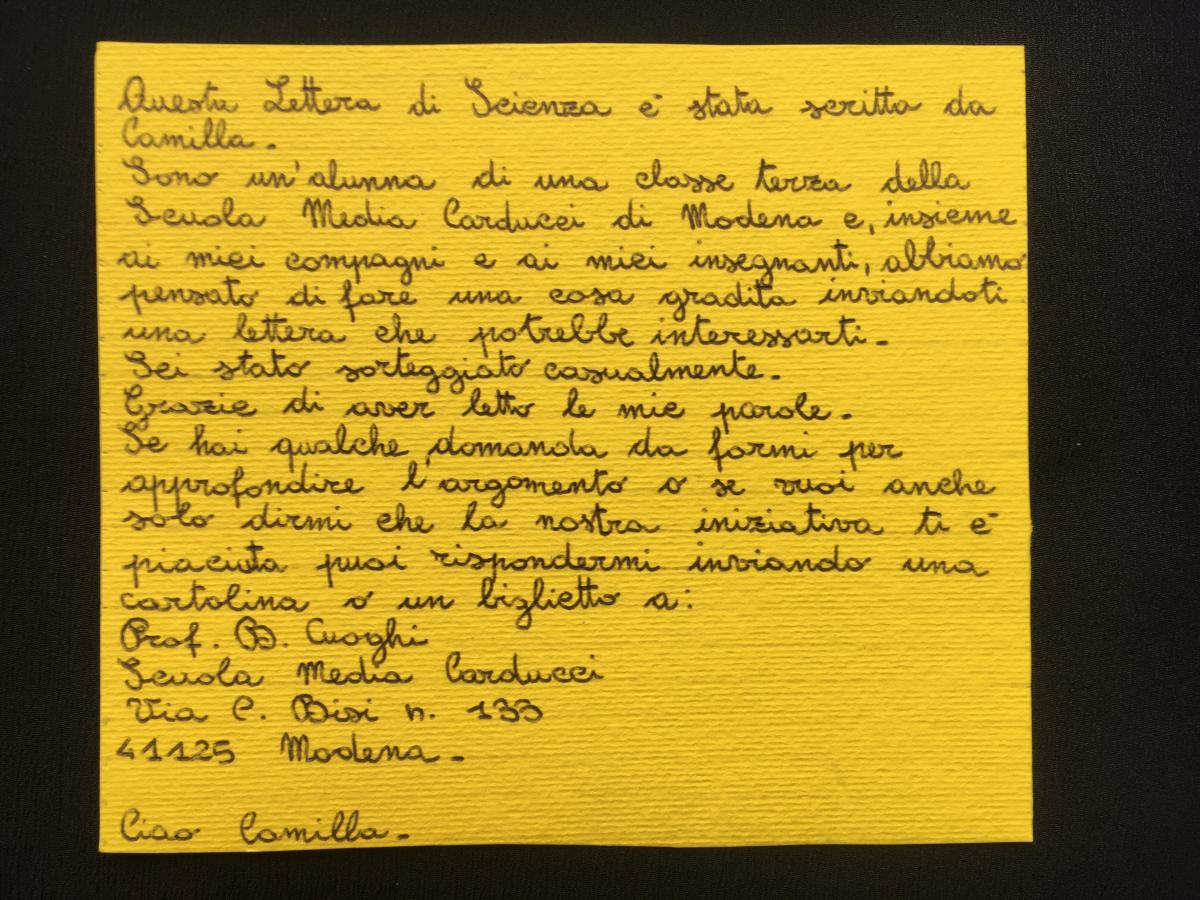 Questa Lettera di Scienza e' stata scritta da
Camilla.
Sono un'alunna di una classe terza della
Scuola Media Carducci di Modena e, insieme
ai miei compagni e ai miei insegnanti, abbiamo
pensato di fare una cosa gradita inviandoti
una lettera che potrebbe interessarti.
Sei stato sorteggiato casualmente.
Grazie di aver letto le mie parole.
Se hai qualche domanda da farmi per
approfondire l'argomento o se vuoi anche
solo dirmi che la nostra iniziativa ti e'
piaciuta puoi rispondermi inviando una
cartolina o un biglietto a:
Prof. B. Cuoghi
Scuola Media Carducci
Via C. Bisi n. 133
41125 Modena.
Ciao Camilla.